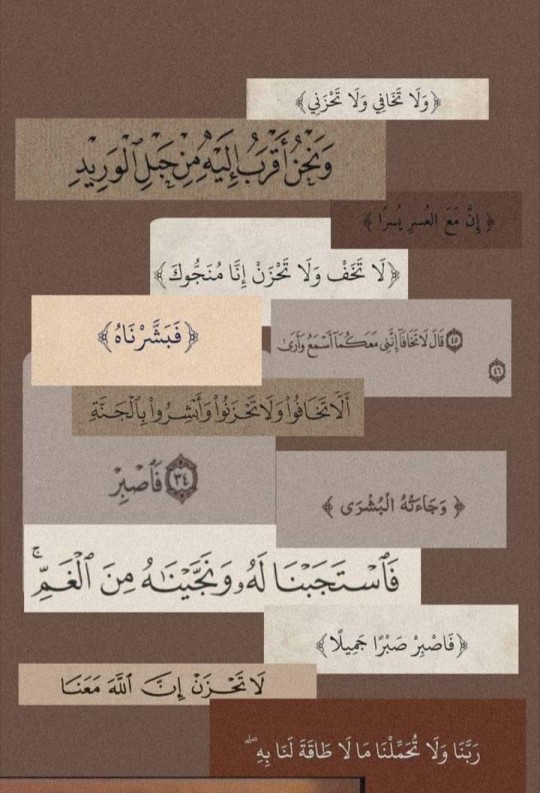 ﴿وَلَا تَخَافِي وَلَا تَحْزَنِي﴾
وَنَحْنُ أَقْرَبُ إِلَيْهِ مِنْ حَبْلِ ٱلْوَرِيدِ
﴿ إِنَّ مَعَ العُسرِ يُسرًا ﴾
﴿لَا تَخَفْ وَلَا تَحْزَنْ إِنَّا مُنَجُّوكَ﴾
﴿فَبَشَّرْنَاهُ﴾
٤٥ قَالَ لَا تَخَافَآ إِنَّنِى مَعَكُمَآ أَسْمَعُ وَأَرَىٰ
٤٦
أَلَّا تَخَافُوا۟ وَلَا تَحْزَنُوا۟ وَأَبْشِرُوا۟ بِٱلْجَنَّةِ
٣٤ فَٱصْبِرْ
﴿ وَجَاءَتْهُ الْبُشْرَى ﴾
فَٱسْتَجَبْنَا لَهُۥ وَنَجَّيْنَٰهُ مِنَ ٱلْغَمِّ ۚ
﴿فَاصْبِرْ صَبْرًا جَمِيلًا﴾
لَا تَحْزَنْ إِنَّ ٱللَّهَ مَعَنَا
رَبَّنَا وَلَا تُحَمِّلْنَا مَا لَا طَاقَةَ لَنَا بِهِ ۖ